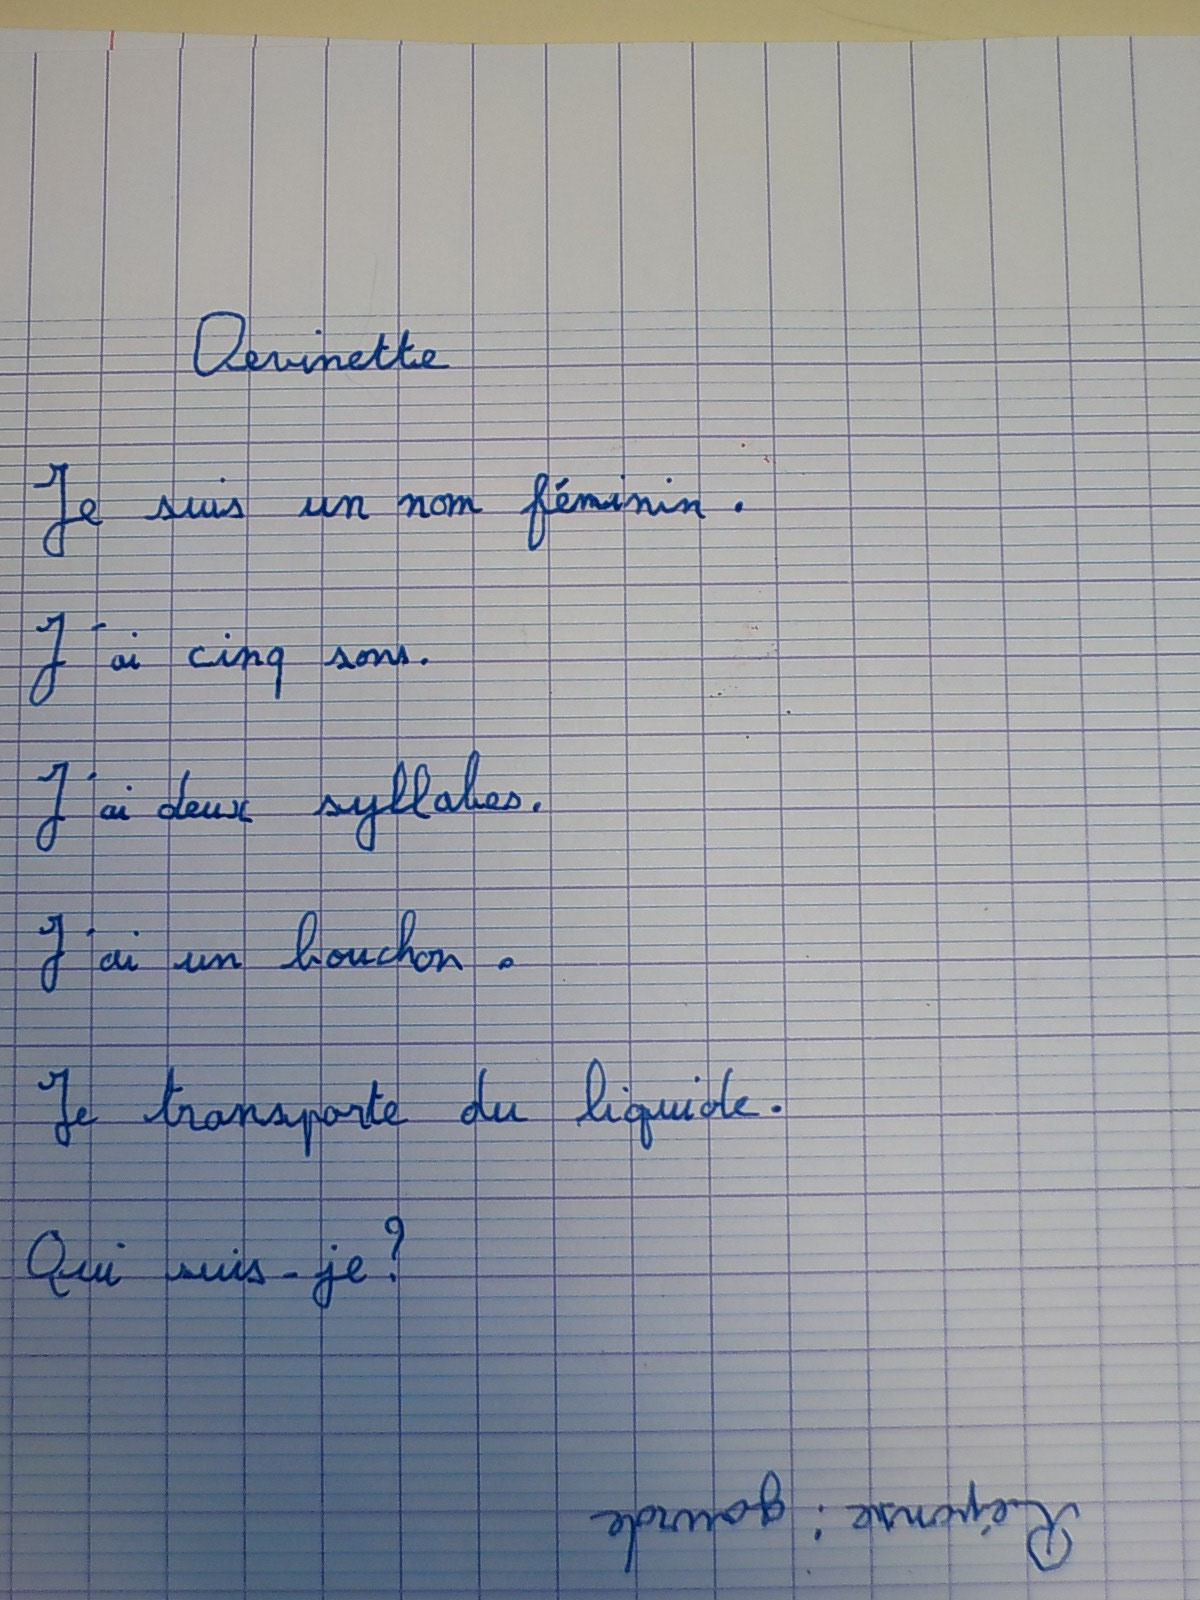 Devinette
Je suis un nom féminin.
J'ai cinq sons.
J'ai deux syllabes.
J'ai un bouchon.
Je transporte du liquide.
Qui suis-je?
Réponse : gourde